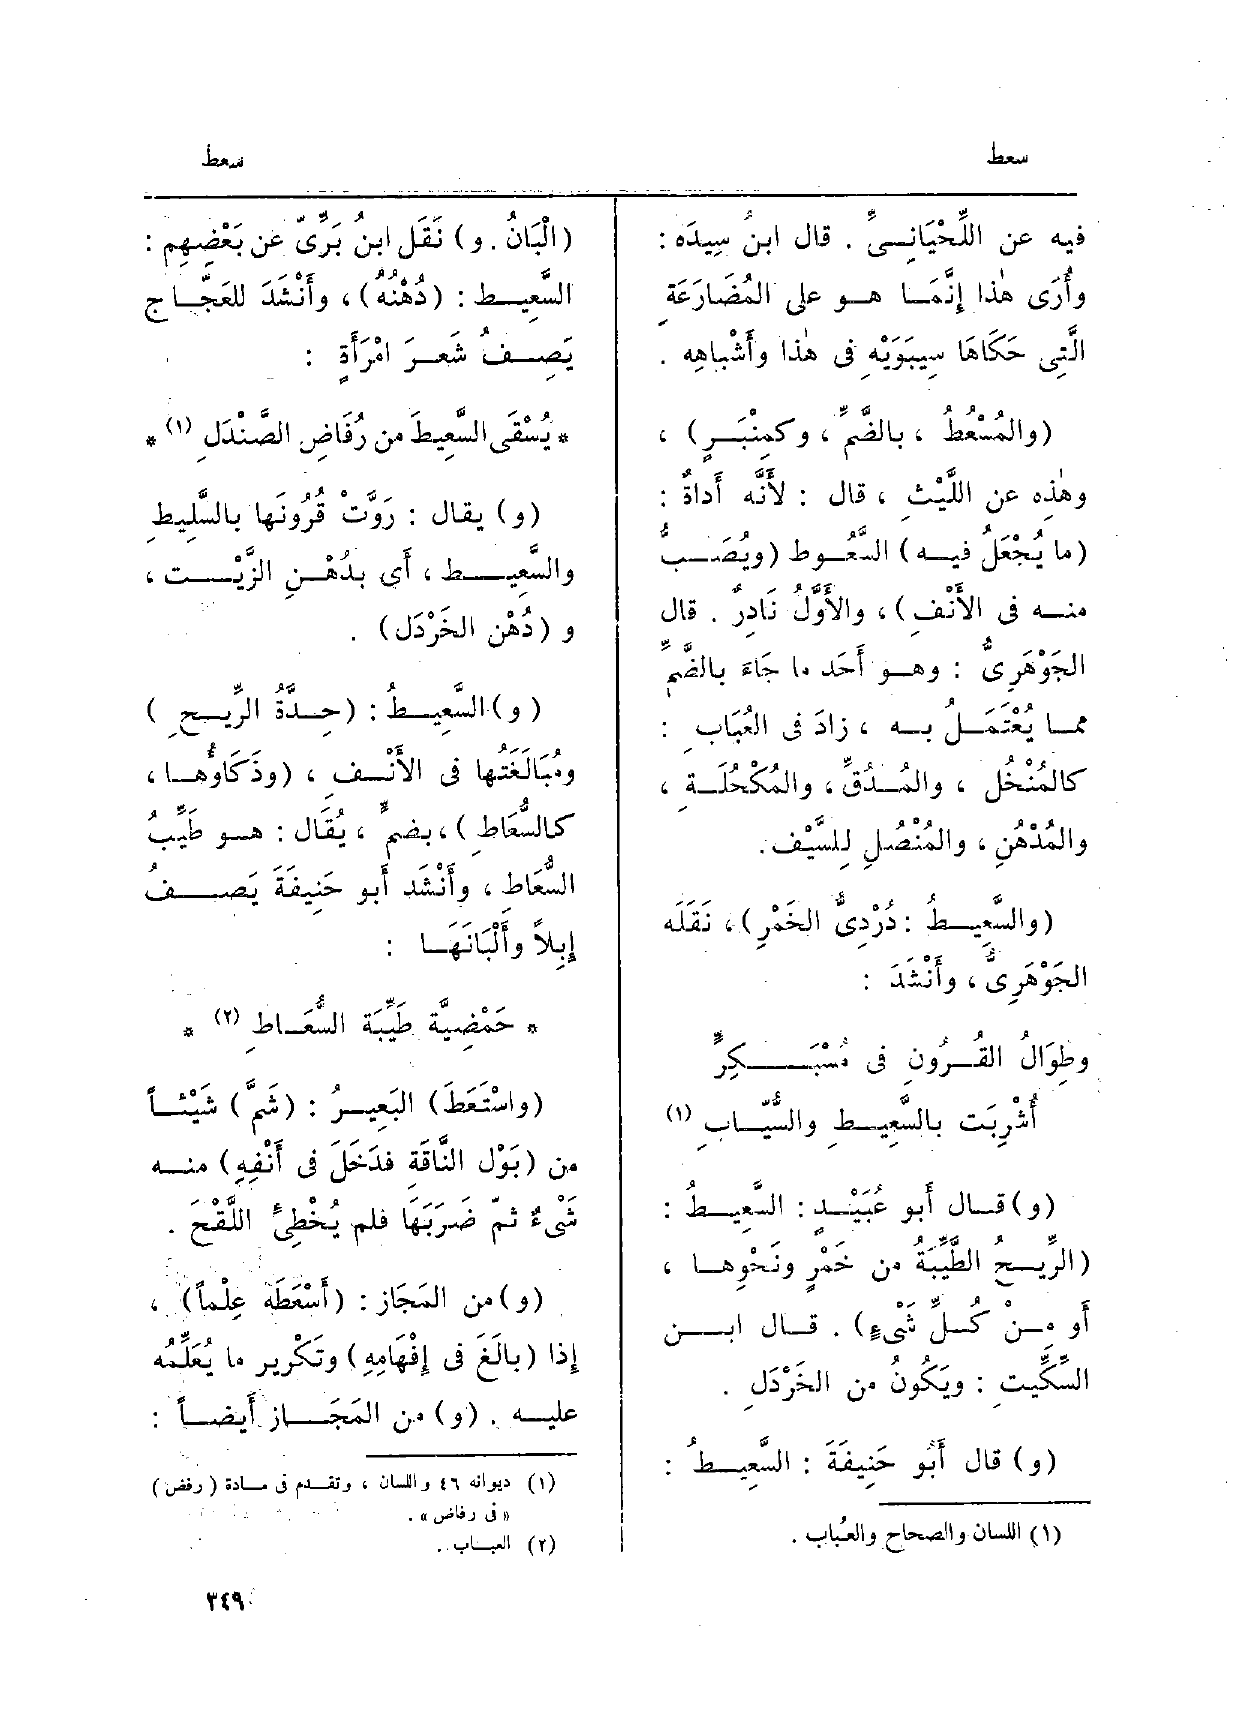 سعط
سعط
فيه عن اللِّحْيَانِىِّ . قال ابنُ سِيدَه :
وأُرَى هٰذا إِنَّمَا هو على المُضَارَعَةِ
الَّتِى حَكَاهَا سِيبَوَيْهِ فى هٰذا وأَشْباهِه .
(والمُسْعُطُ ، بالضَّمِّ ، وكمِنْبَرٍ) ،
وهٰذِه عن اللَّيْثِ ، قال : لأَنَّه أَداةٌ :
(ما يُجْعَلُ فيه) السَّعُوط (ويُصَبُّ
منه فى الأَنْفِ) ، والأَوَّلُ نَادِرٌ . قال
الجَوْهَرِىُّ : وهو أَحَد ما جَاءَ بالضَّمِّ
مما يُعْتَمَلُ به ، زادَ فى العُبَابِ :
كالمُنْخُلِ ، والمُدُقِّ ، والمُكْحُلَةِ ،
والمُدْهُنِ ، والمُنْصُلِ لِلسَّيْفِ.
(والسَّعِيطُ : دُرْدِىُّ الخَمْرِ) ، نَقَلَه
الجَوْهَرِىُّ ، وأَنْشَدَ :
وطِوَالُ القُرُونِ فى مُسْبَكِرٍّ
أُشْرِبَت بالسَّعِيطِ والسَّيّابِ (١)
(و) قال أبو عُبَيْدٍ : السَّعِيطُ :
(الرِّيحُ الطَّيِّبَةُ من خَمْرٍ ونَحْوِها ،
أو مِنْ كُلِّ شَىْءٍ) . قال ابن
السِّكِّيتِ : ويَكُونُ من الخَرْدَلِ .
(و) قال أَبُو حَنِيفَةَ : السَّعِيطُ :
(١) اللسان والصحاح والعُباب .
(الْبَانُ . و) نَقَل ابنُ بَرِّىّ عن بَعْضِهِم :
السَّعِيط : (دُهْنُهُ) ، وأَنْشَدَ للعَجّاجِ
يَصِفُ شَعرَ امْرَأَةٍ :
* يُسْقَى السَّعِيطَ من رُفَاضِ الصَّنْدَلِ (١) *
(و) يقال : رَوَّتْ قُرُونَها بالسَّلِيطِ
والسَّعِيط ، أَى بدُهْنِ الزَّيْت ،
و (دُهْن الخَرْدَل) .
(و) السَّعِيطُ : (حِدَّةُ الرِّيحِ )
ومُبَالَغَتُها فى الأَنْفِ ، (وذَكَاؤُهَا ،
كالسُّعَاطِ) ، بضمٍّ ، يُقَال : هو طَيِّبُ
السُّعَاطِ ، وأَنْشَد أَبو حَنِيفَةَ يَصِفُ
إِبِلاً وأَلْبَانَهَا :
* حَمْضِيَّة طَيِّبَة السُّعَاطِ (٢) *
(واسْتَعَطَ) البَعِيرُ : (شَمَّ) شَيْئاً
من (بَوْل النَّاقَةِ فدَخَلَ فى أَنْفِهِ) منه
شَىْءٌ ثمّ ضَرَبَهَا فلم يُخْطِئْ اللَّقْحَ .
(و) من المَجَاز : (أَسْعَطَهُ عِلْماً) ،
إِذا (بالَغَ فى إِفْهَامِهِ) وتَكْرِيرِ ما يُعَلِّمُه
عليه . (و) من المَجَاز أَيضاً :
(١) ديوانه ٤٦ واللسان ، وتقدم فى مادة (رفض)
« فى رفاض » .
(٢) العباب .
٣٤٩